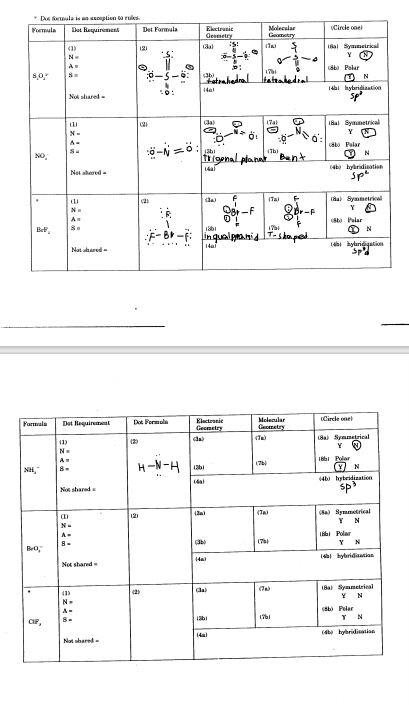 * Dot formula is an exception to rules.
Formula Dot Requirement Dot Formula Electronic Geometry Molecular Geometry (Circle one)
S₂O₃²⁻
(1)
N =
A =
S =
Not shared =
(2)
:S:
:O-S-O:
:O:
(3a)
:S:
:O-S-O:
:O:
(3b)
tetrahedral
(4a)
(7a)
S
(7b)
tetrahedral
(8a) Symmetrical
Y N
(8b) Polar
Y N
(4b) hybridization
sp³
NO₂⁻
(1)
N =
A =
S =
Not shared =
(2)
:O-N=O:
(3a)
(3b)
Trigonal planar
(4a)
(7a)
(7b)
Bent
(8a) Symmetrical
Y N
(8b) Polar
Y N
(4b) hybridization
sp²
*
BrF₃
(1)
N =
A =
S =
Not shared =
(2)
:F:
:F-Br-F:
(3a)
F
Br-F
F
(3b)
(4a)
(7a)
F
Br-F
F
(7b)
T-shaped
(8a) Symmetrical
Y N
(8b) Polar
Y N
(4b) hybridization
sp³d
Formula Dot Requirement Dot Formula Electronic Geometry Molecular Geometry (Circle one)
NH₂⁻
(1)
N =
A =
S =
Not shared =
(2)
H-N-H
(3a)
(3b)
(4a)
(7a)
(7b)
(8a) Symmetrical
Y N
(8b) Polar
Y N
(4b) hybridization
sp³
BrO₃⁻
(1)
N =
A =
S =
Not shared =
(2)
(3a)
(3b)
(4a)
(7a)
(7b)
(8a) Symmetrical
Y N
(8b) Polar
Y N
(4b) hybridization
*
ClF₃
(1)
N =
A =
S =
Not shared =
(2)
(3a)
(3b)
(4a)
(7a)
(7b)
(8a) Symmetrical
Y N
(8b) Polar
Y N
(4b) hybridization